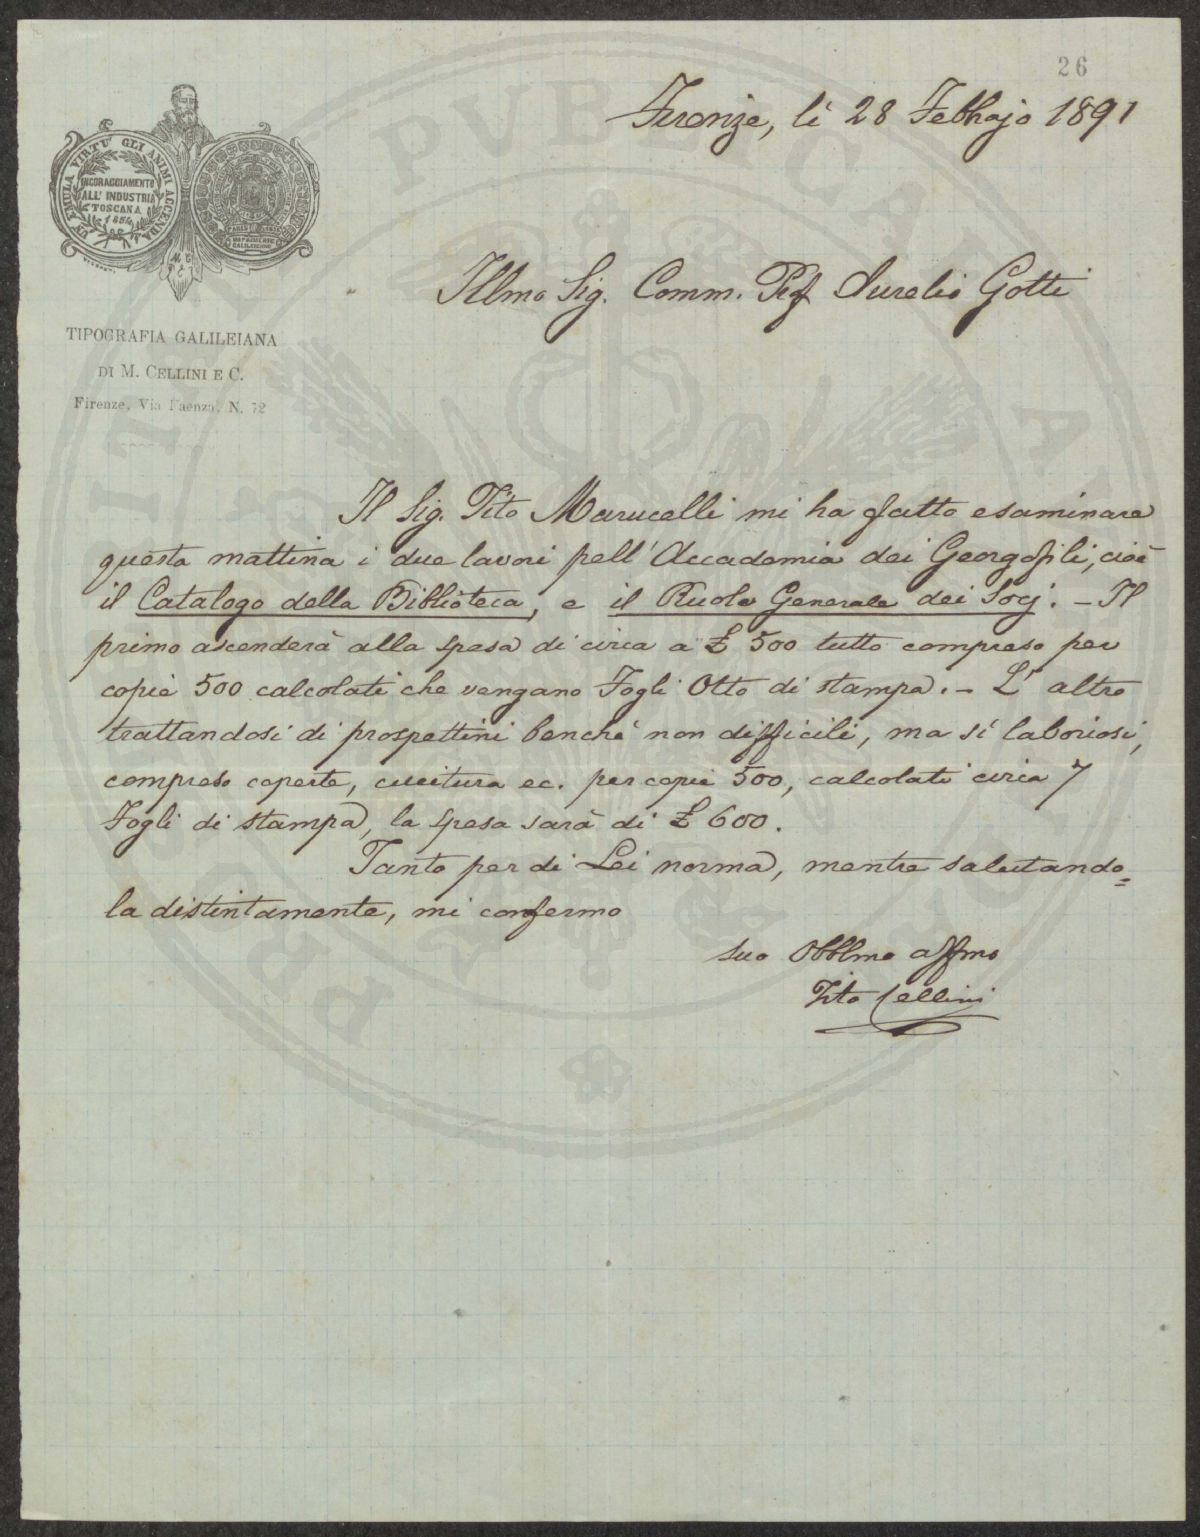 26
Firenze, li 28 Febbrajo 1891
UN' EMULA VIRTU' GLI ANIMI ACCENDA
INCORAGGIAMENTO
ALL' INDUSTRIA
TOSCANA
1854
TIPOGRAFIA GALILEIANA
DI M. CELLINI E C.
Firenze, Via Faenza, N. 72
Illmo Sig. Comm. Prof Aurelio Gotti
Il Sig. Tito Marucelli mi ha fatto esaminare
questa mattina i due lavori pell' Accademia dei Georgofili, cioè
il Catalogo della Biblioteca, e il Ruolo Generale dei Socj. - Il
primo ascenderà alla spesa di circa a £ 500 tutto compreso per
copie 500 calcolati che vengano Fogli Otto di stampa. - L' altro
trattandosi di prospettini benchè non difficili, ma sì laboriosi,
compreso coperte, cucitura ec. per copie 500, calcolati circa 7
Fogli di stampa, la spesa sarà di £ 600.
Tanto per di Lei norma, mentre salutando=
la distintamente, mi confermo
suo Obblmo affmo
Tito Cellini